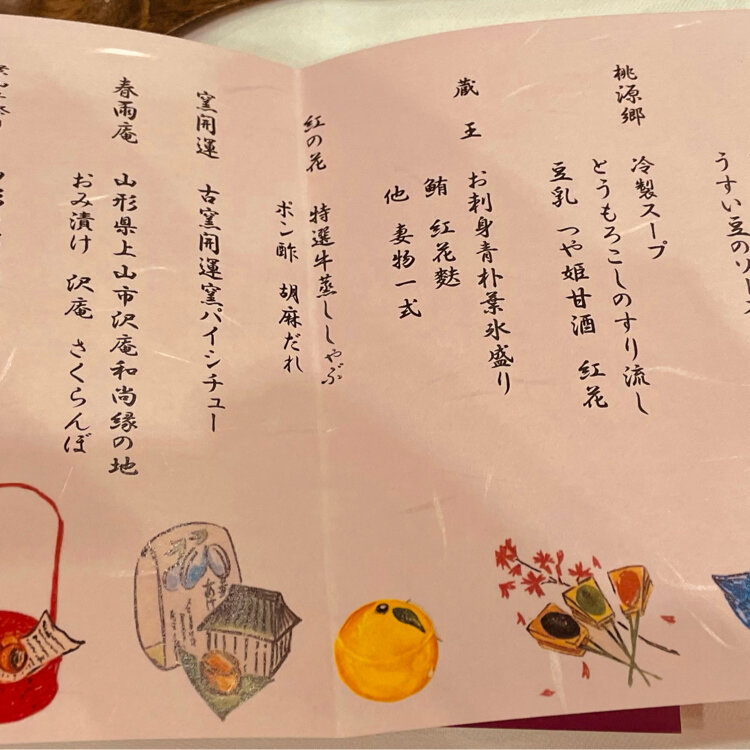 うすい豆のソース
桃源郷
冷製スープ
とうもろこしのすり流し
豆乳 つや姫甘酒 紅花
蔵王
お刺身青朴葉氷盛り
鮪 紅花麩
他 妻物一式
紅の花 特選牛蒸ししゃぶ
ポン酢 胡麻だれ
窯開運 古窯開運窯パイシチュー
春雨庵 山形県上山市沢庵和尚縁の地
おみ漬け 沢庵 さくらんぼ